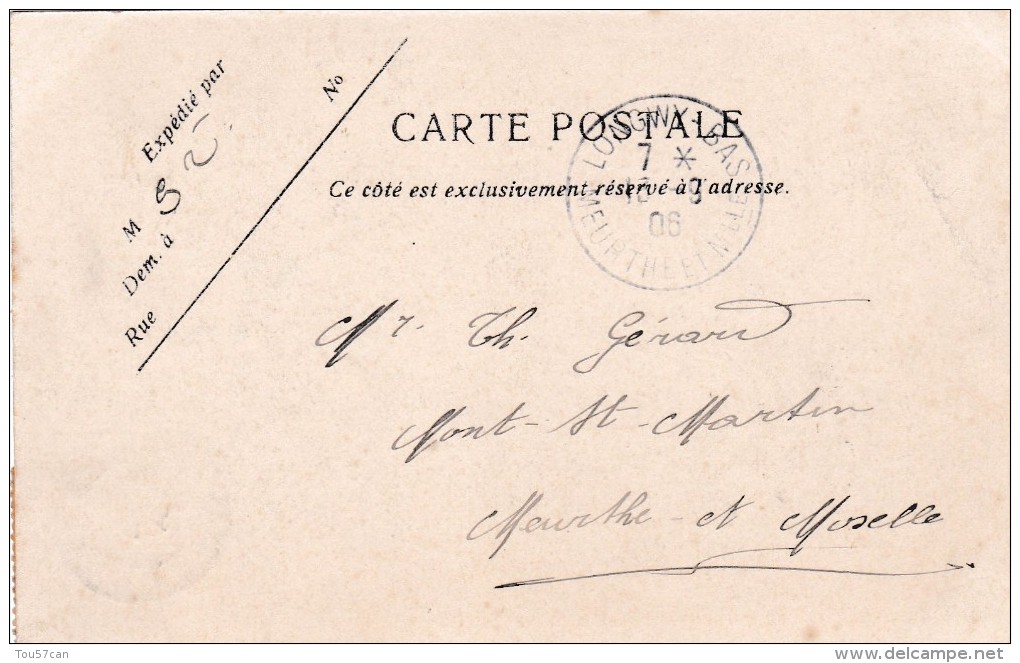 Expédié par
M
Dem. à
Rue
No
CARTE POSTALE
Ce côté est exclusivement réservé à l'adresse.
LONGWY-BAS
7 *
-9
06
MEURTHE ET M'LLE
Mr. Th. Gérard
Mont-St-Martin
Meurthe-et Moselle
Tou57can
www.delcampe.net